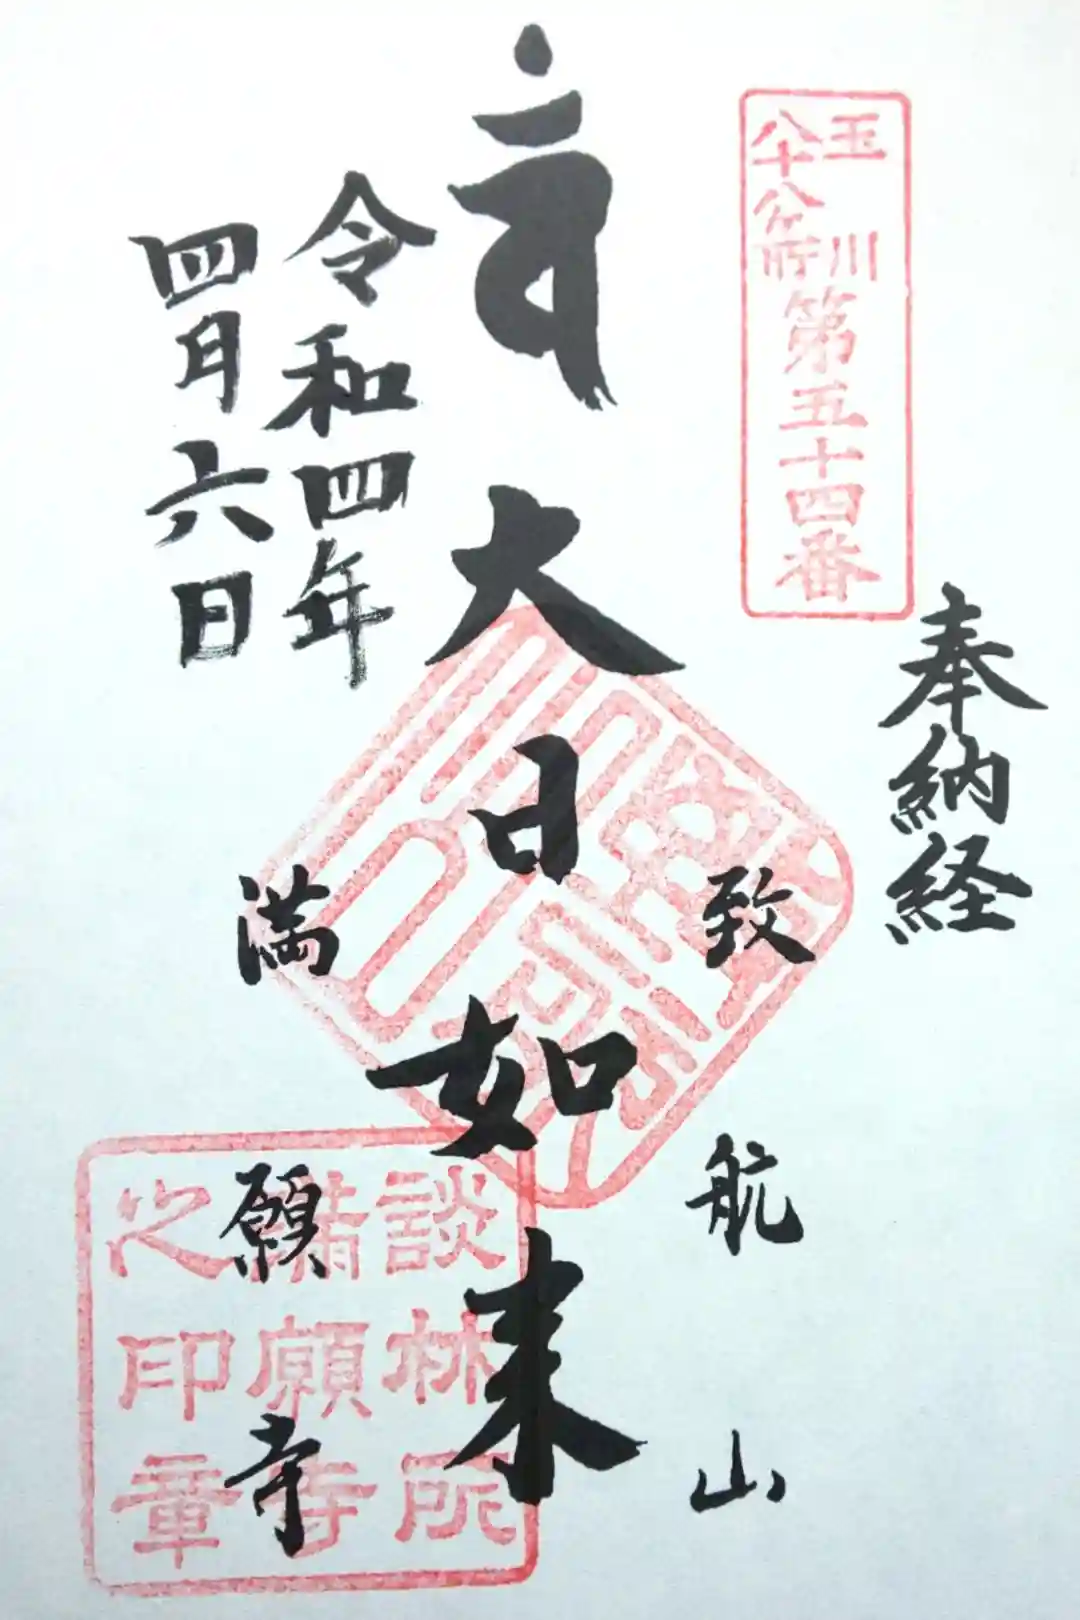 奉納経
玉川
八十八ケ所
第五十四番
致航山
大日如来
満願寺
令和四年
四月六日
談林所
満願寺
之印章